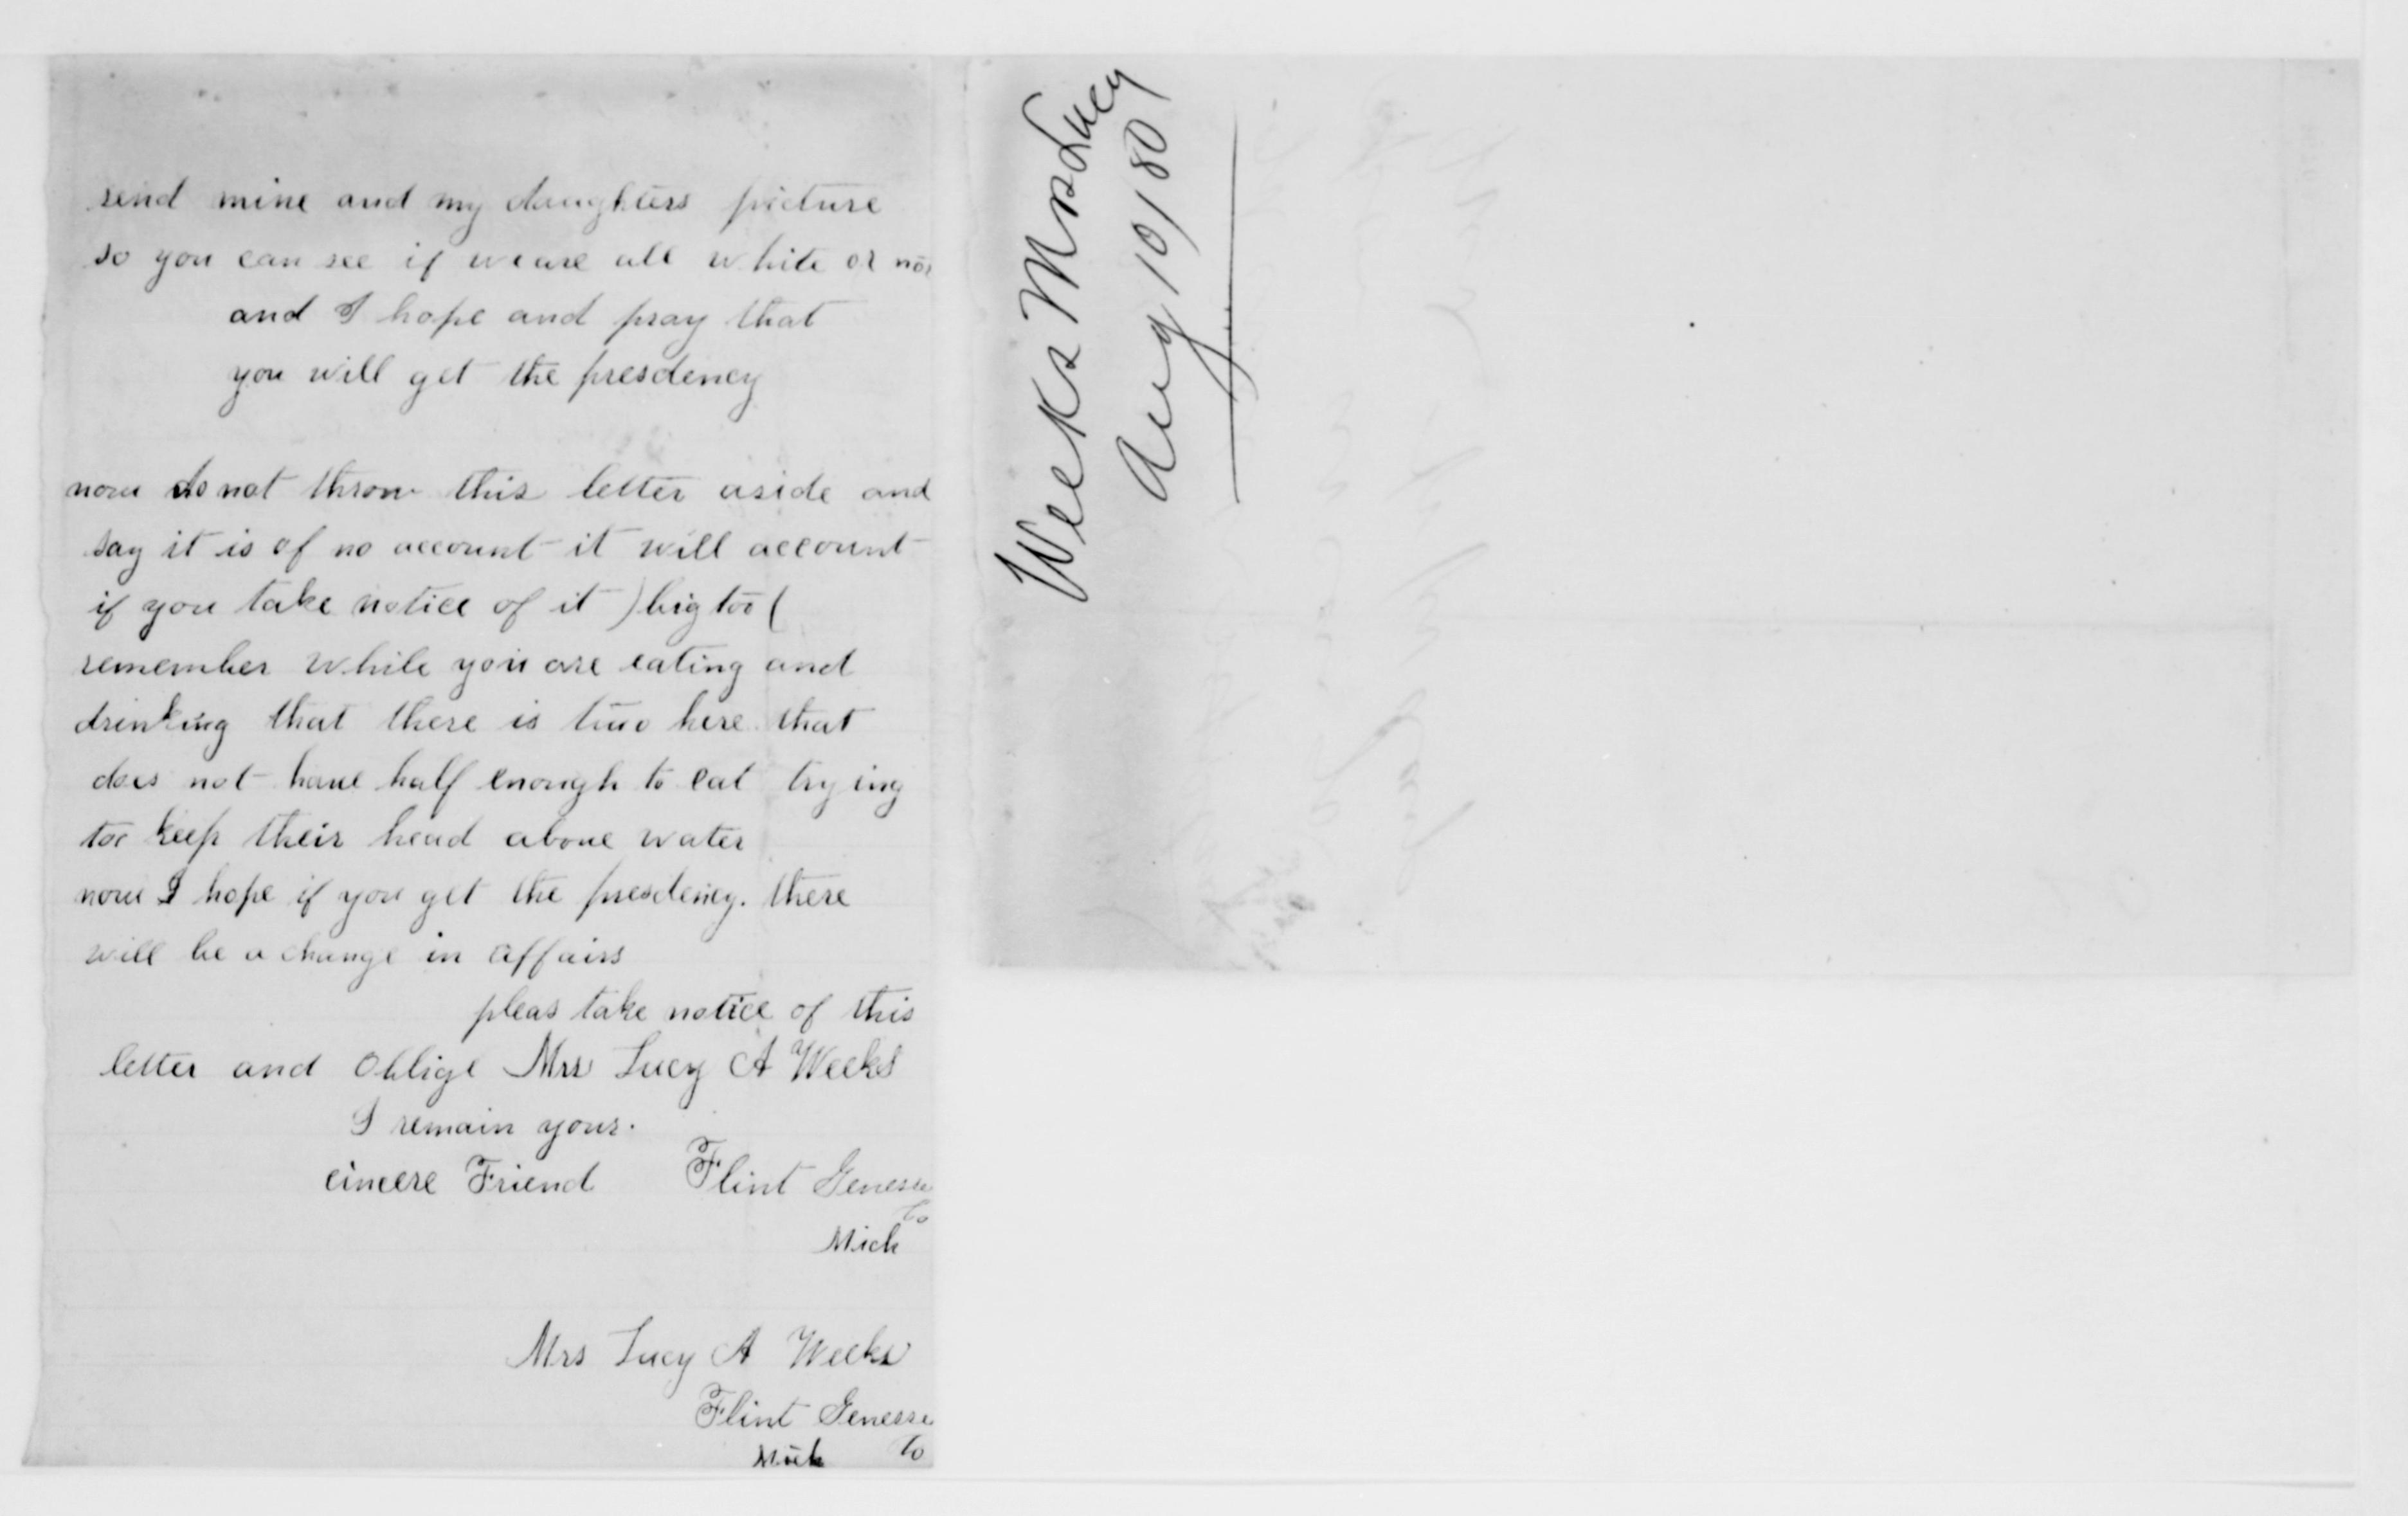 send mine and my daughters picture
so you can see if we are all white or not
and I hope and pray that
you will get the presdency
now do not throw this letter aside and
say it is of no account it will account
if you take notice of it )big too(
remember while you are eating and
drinking that there is two here that
does not have half enough to eat trying
too keep their head above water
now I hope if you get the presdency. there
will be a change in affairs
pleas take notice of this
letter and oblige Mrs Lucy A Weeks
I remain yours.
cincere Friend Flint Genesse
Co
Mich
Mrs Lucy A Weeks
Flint Genesse
Mich Co
Weeks Mrs Lucy
Aug 10/80